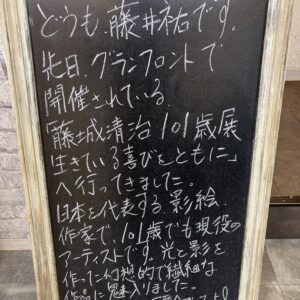 どうも、藤井祐です。
先日、グランフロントで
開催されている、
藤城清治 101歳展
生きている喜びをともに」
へ行ってきました。
日本を代表する、影絵
作家で、101歳でも現役の
アーティストです。光と影を
作った幻想的で繊細な
作品に魅入りました。